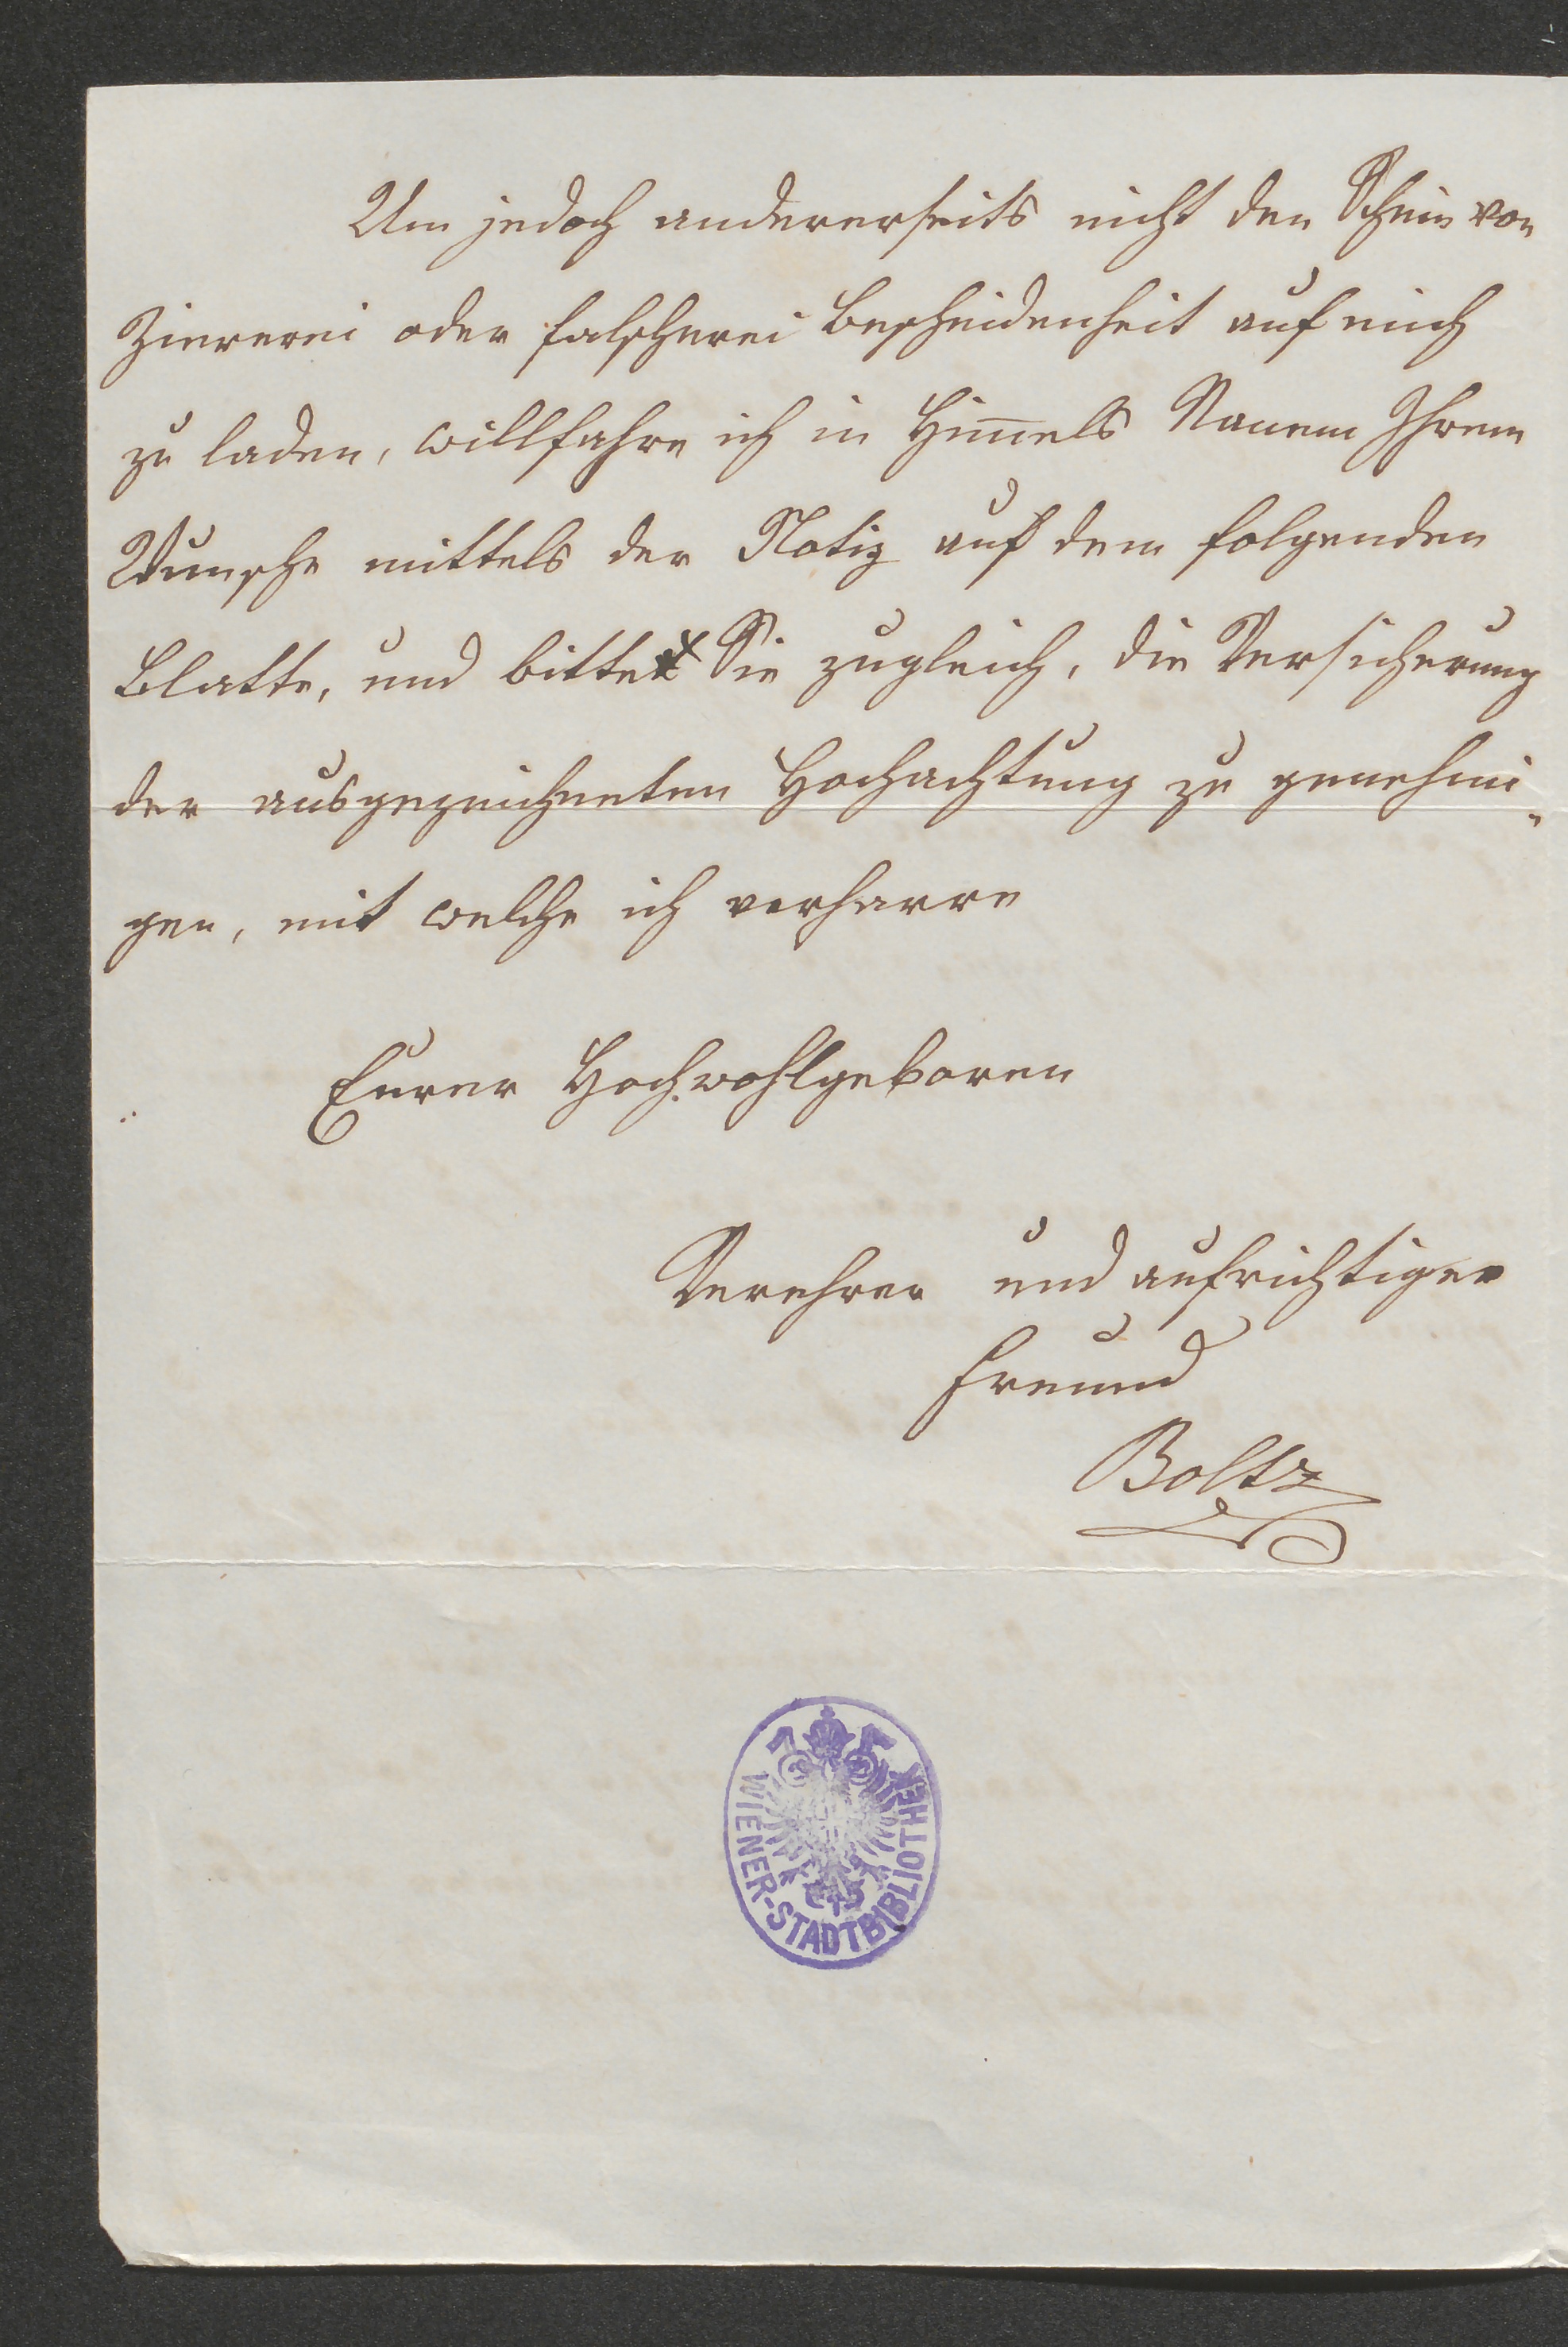 Um jedoch andererseits nicht den Schein von
Ziererei oder falscherei Bescheidenheit auf mich
zu laden, willfahre ich in Him̅els Namen Ihrem
Wunsche mittels der Notiz auf dem folgenden
Blatte, und bitte Sie zugleich, die Versicherung
der ausgezeichneten Hochachtung zu genehmi-
gen, mit welche ich verharre
Eurer Hochwohlgeboren
Verehrer und aufrichtiger
Freund
Boltz
WIENER-STADTBIBLIOTHEK